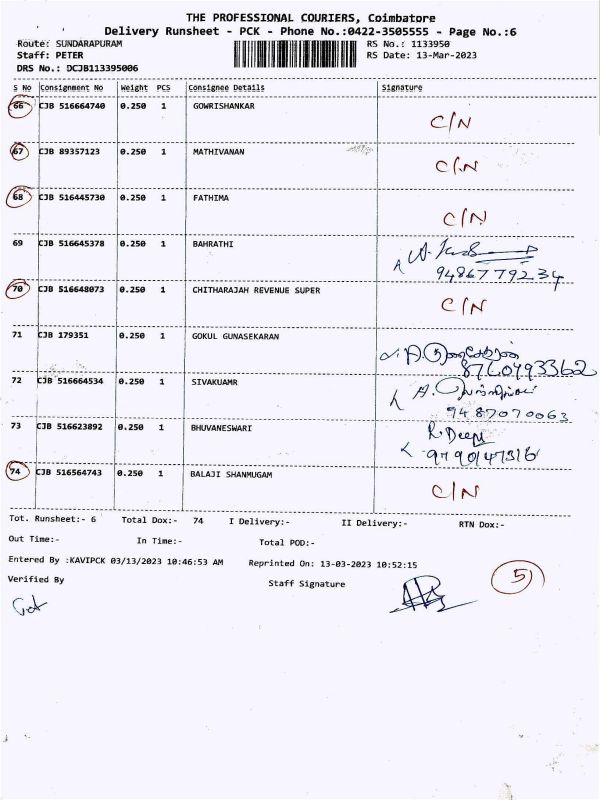 THE PROFESSIONAL COURIERS, Coimbatore
Delivery Runsheet - PCK - Phone No.:0422-3505555 - Page No.:6
Route: SUNDARAPURAM RS No.: 1133950
Staff: PETER RS Date: 13-Mar-2023
DRS No.: DCJB113395006
S No Consignment No Weight PCS Consignee Details Signature
66 CJB 516664740 0.250 1 GOWRISHANKAR C/N
67 CJB 89357123 0.250 1 MATHIVANAN C/N
68 CJB 516445730 0.250 1 FATHIMA C/N
69 CJB 516645378 0.250 1 BAHRATHI
9486779234
70 CJB 516648073 0.250 1 CHITHARAJAH REVENUE SUPER C/N
71 CJB 179351 0.250 1 GOKUL GUNASEKARAN
8760493362
72 CJB 516664534 0.250 1 SIVAKUAMR
9487070063
73 CJB 516623892 0.250 1 BHUVANESWARI R. Deepu
9790147316
74 CJB 516564743 0.250 1 BALAJI SHANMUGAM C/N
Tot. Runsheet:- 6 Total Dox:- 74 I Delivery:- II Delivery:- RTN Dox:-
Out Time:- In Time:- Total POD:-
Entered By :KAVIPCK 03/13/2023 10:46:53 AM Reprinted On: 13-03-2023 10:52:15
Verified By Staff Signature
5